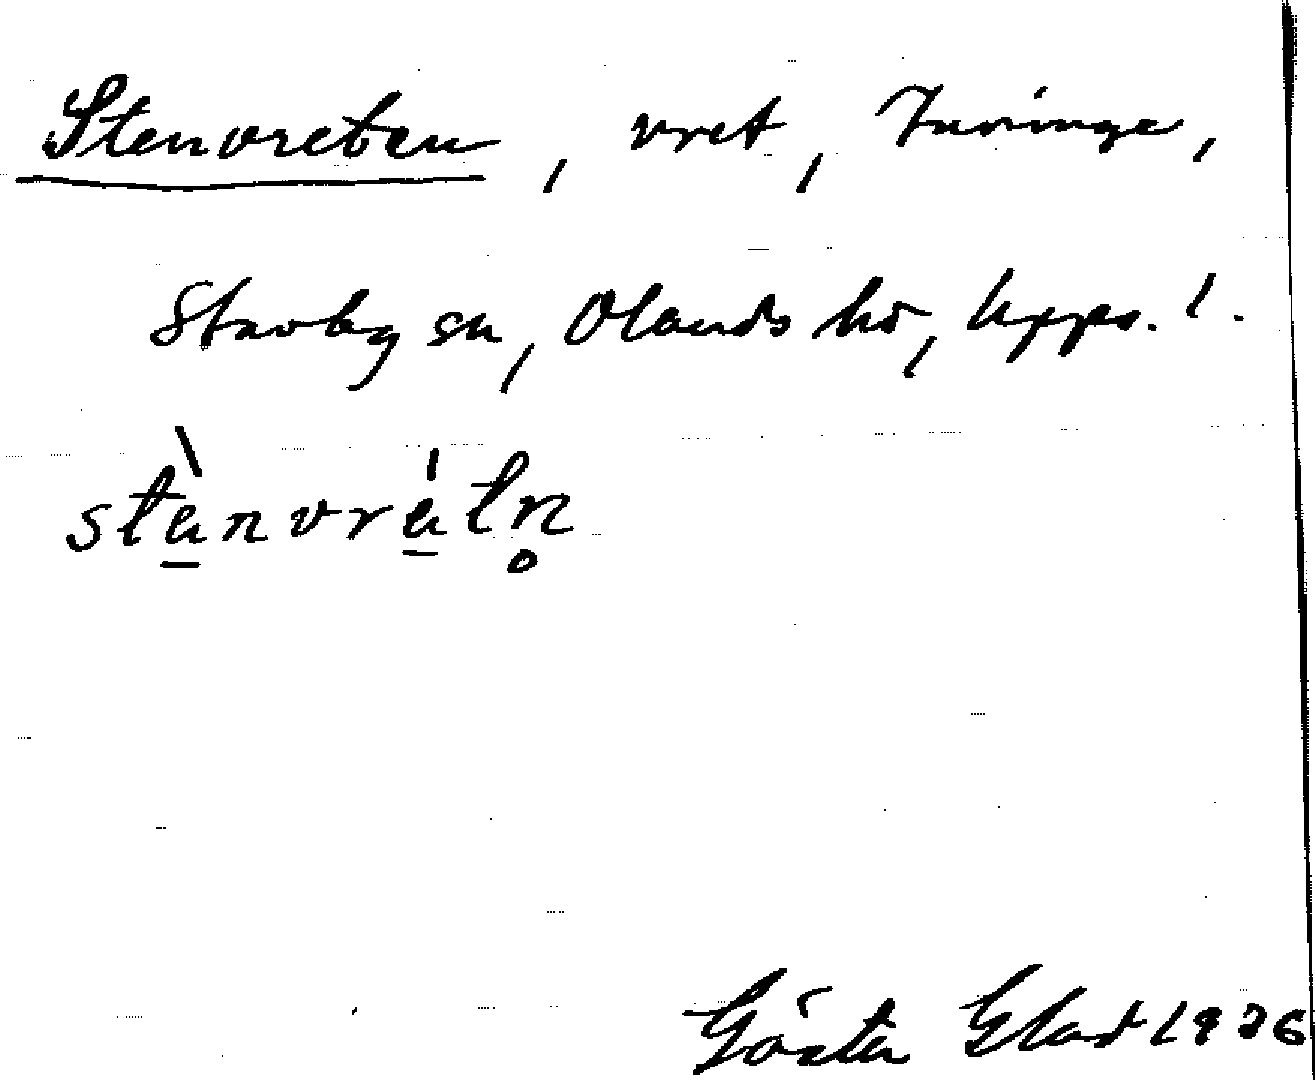 Stenvreten, vret, Turinge,
Stavby sn, Olands hd, Upps. l.
stànvrátn̥
Gösta Glad 1936